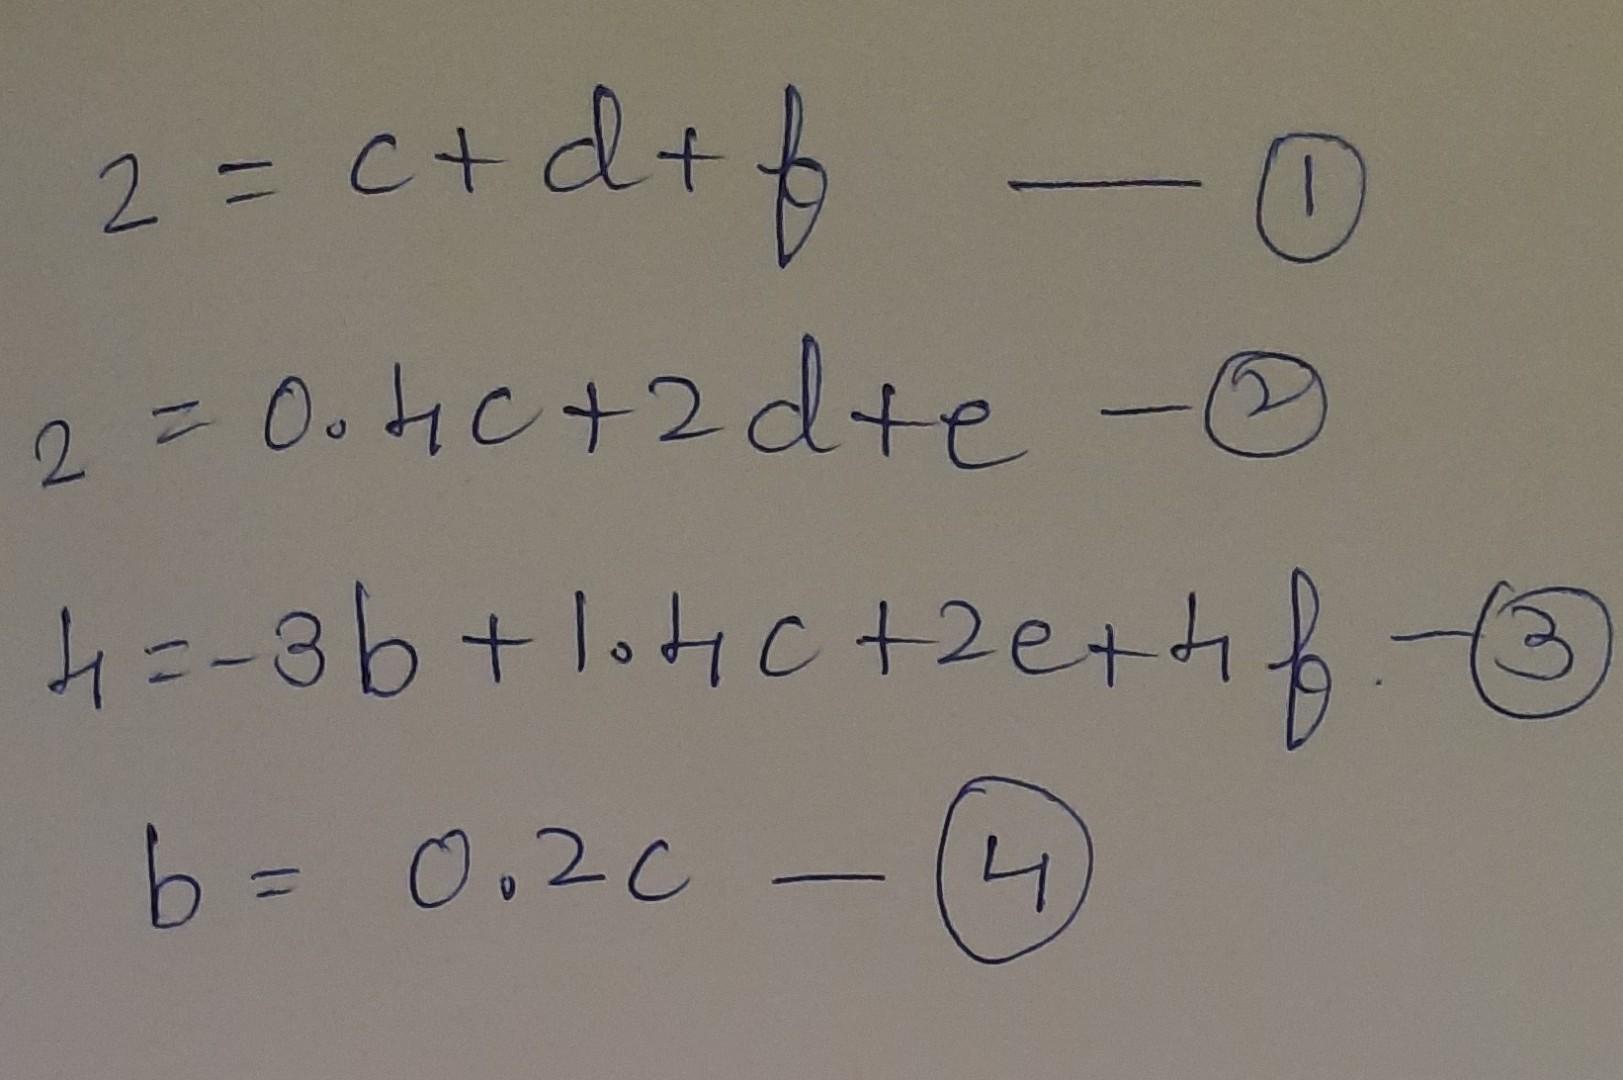 2 = c + d + f — ①
2 = 0.4c + 2d + e — ②
4 = -3b + 1.4c + 2e + 4f. — ③
b = 0.2c — ④